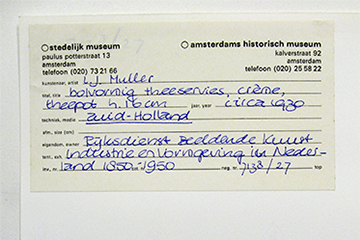 stedelijk museum
paulus potterstraat 13
amsterdam
telefoon (020) 73 21 66
amsterdams historisch museum
kalverstraat 92
amsterdam
telefoon (020) 25 58 22
kunstenaar, artist L.J. Muller
titel, title bolvormig theeservies, crème,
theepot h. 16 cm jaar, year circa 1930
techniek, media Zuid-Holland
afm., size (cm)
eigendom, owner Rijksdienst Beeldende Kunst
tent., exh. industrie en Vormgeving in Neder-
land 1850-1950 neg. nr. 738/27 top
inv. nr.